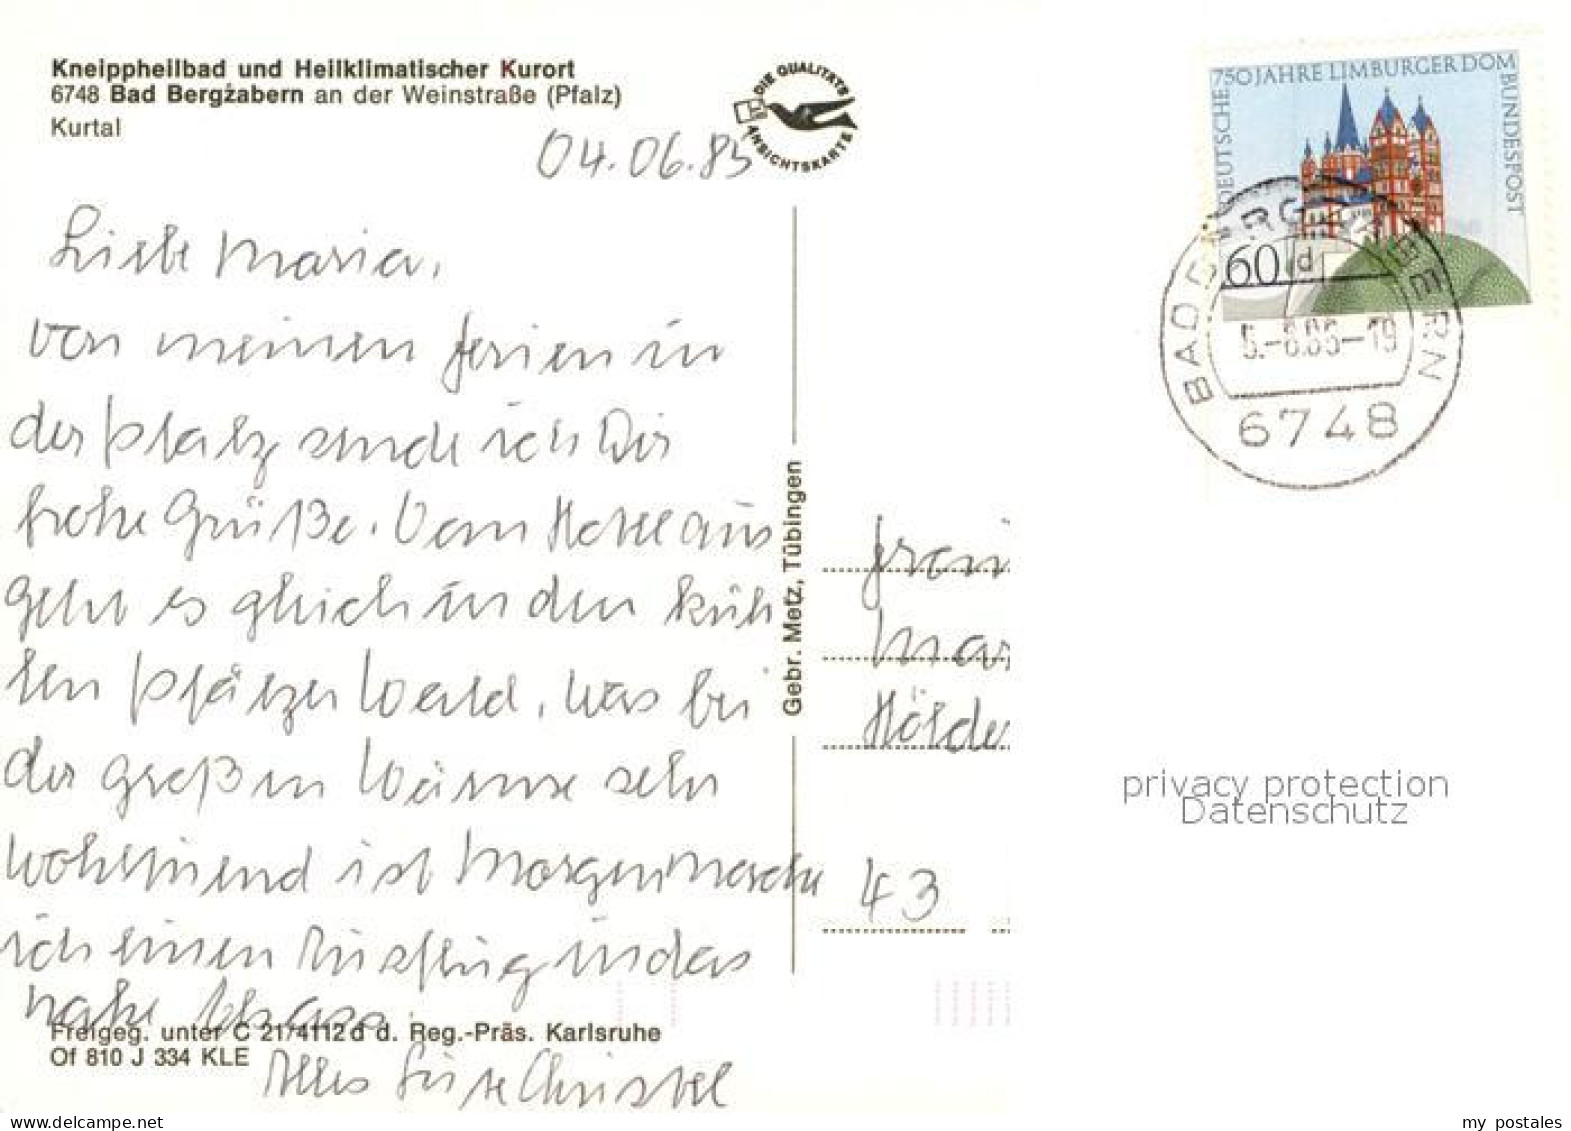 Kneippheilbad und Heilklimatischer Kurort
6748 Bad Bergzabern an der Weinstraße (Pfalz)
Kurtal
DIE QUALITÄTS
ANSICHTSKARTE
04.06.85
Liebe Maria,
von meinen Ferien in
der Pfalz sende ich Dir
frohe Grüße. Vom Hotel aus
geht es gleich in den küh
len Pfälzer Wald, was bei
der großen Wärme sehr
wohltuend ist. Morgen mache
ich einen Ausflug in das
nahe Elsass.
Alles Gute Christel
Freigeg. unter C 21/4112 d d. Reg.-Präs. Karlsruhe
Of 810 J 334 KLE
Gebr. Metz, Tübingen
750 JAHRE LIMBURGER DOM
DEUTSCHE BUNDESPOST
60
BAD BERGZABERN
d
5.-6.85-19
6748
Mar
Hölde
43
privacy protection
Datenschutz
www.delcampe.net
my_postales